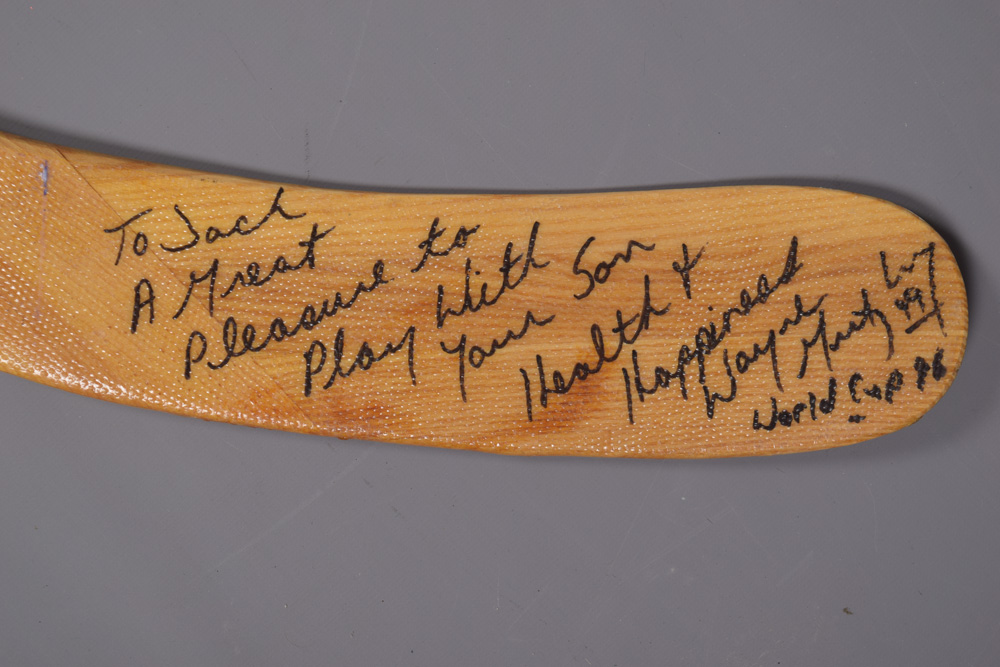 To Jack
A Great
Pleasure to
Play With
Your Son
Health &
Happiness
Wayne Gretzky
99
World Cup 96